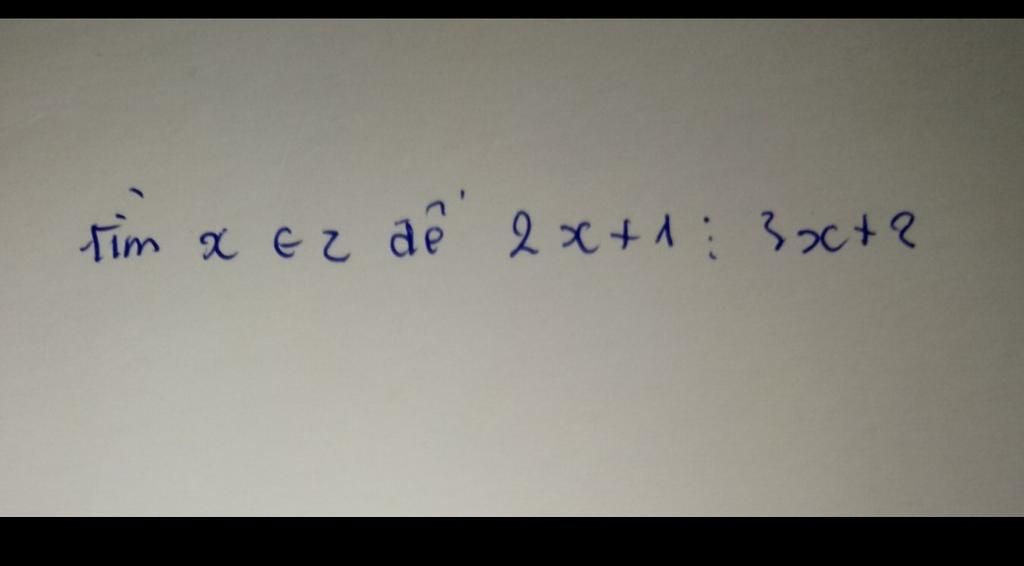 Tìm x ∈ Z để 2x+1 ⋮ 3x+2